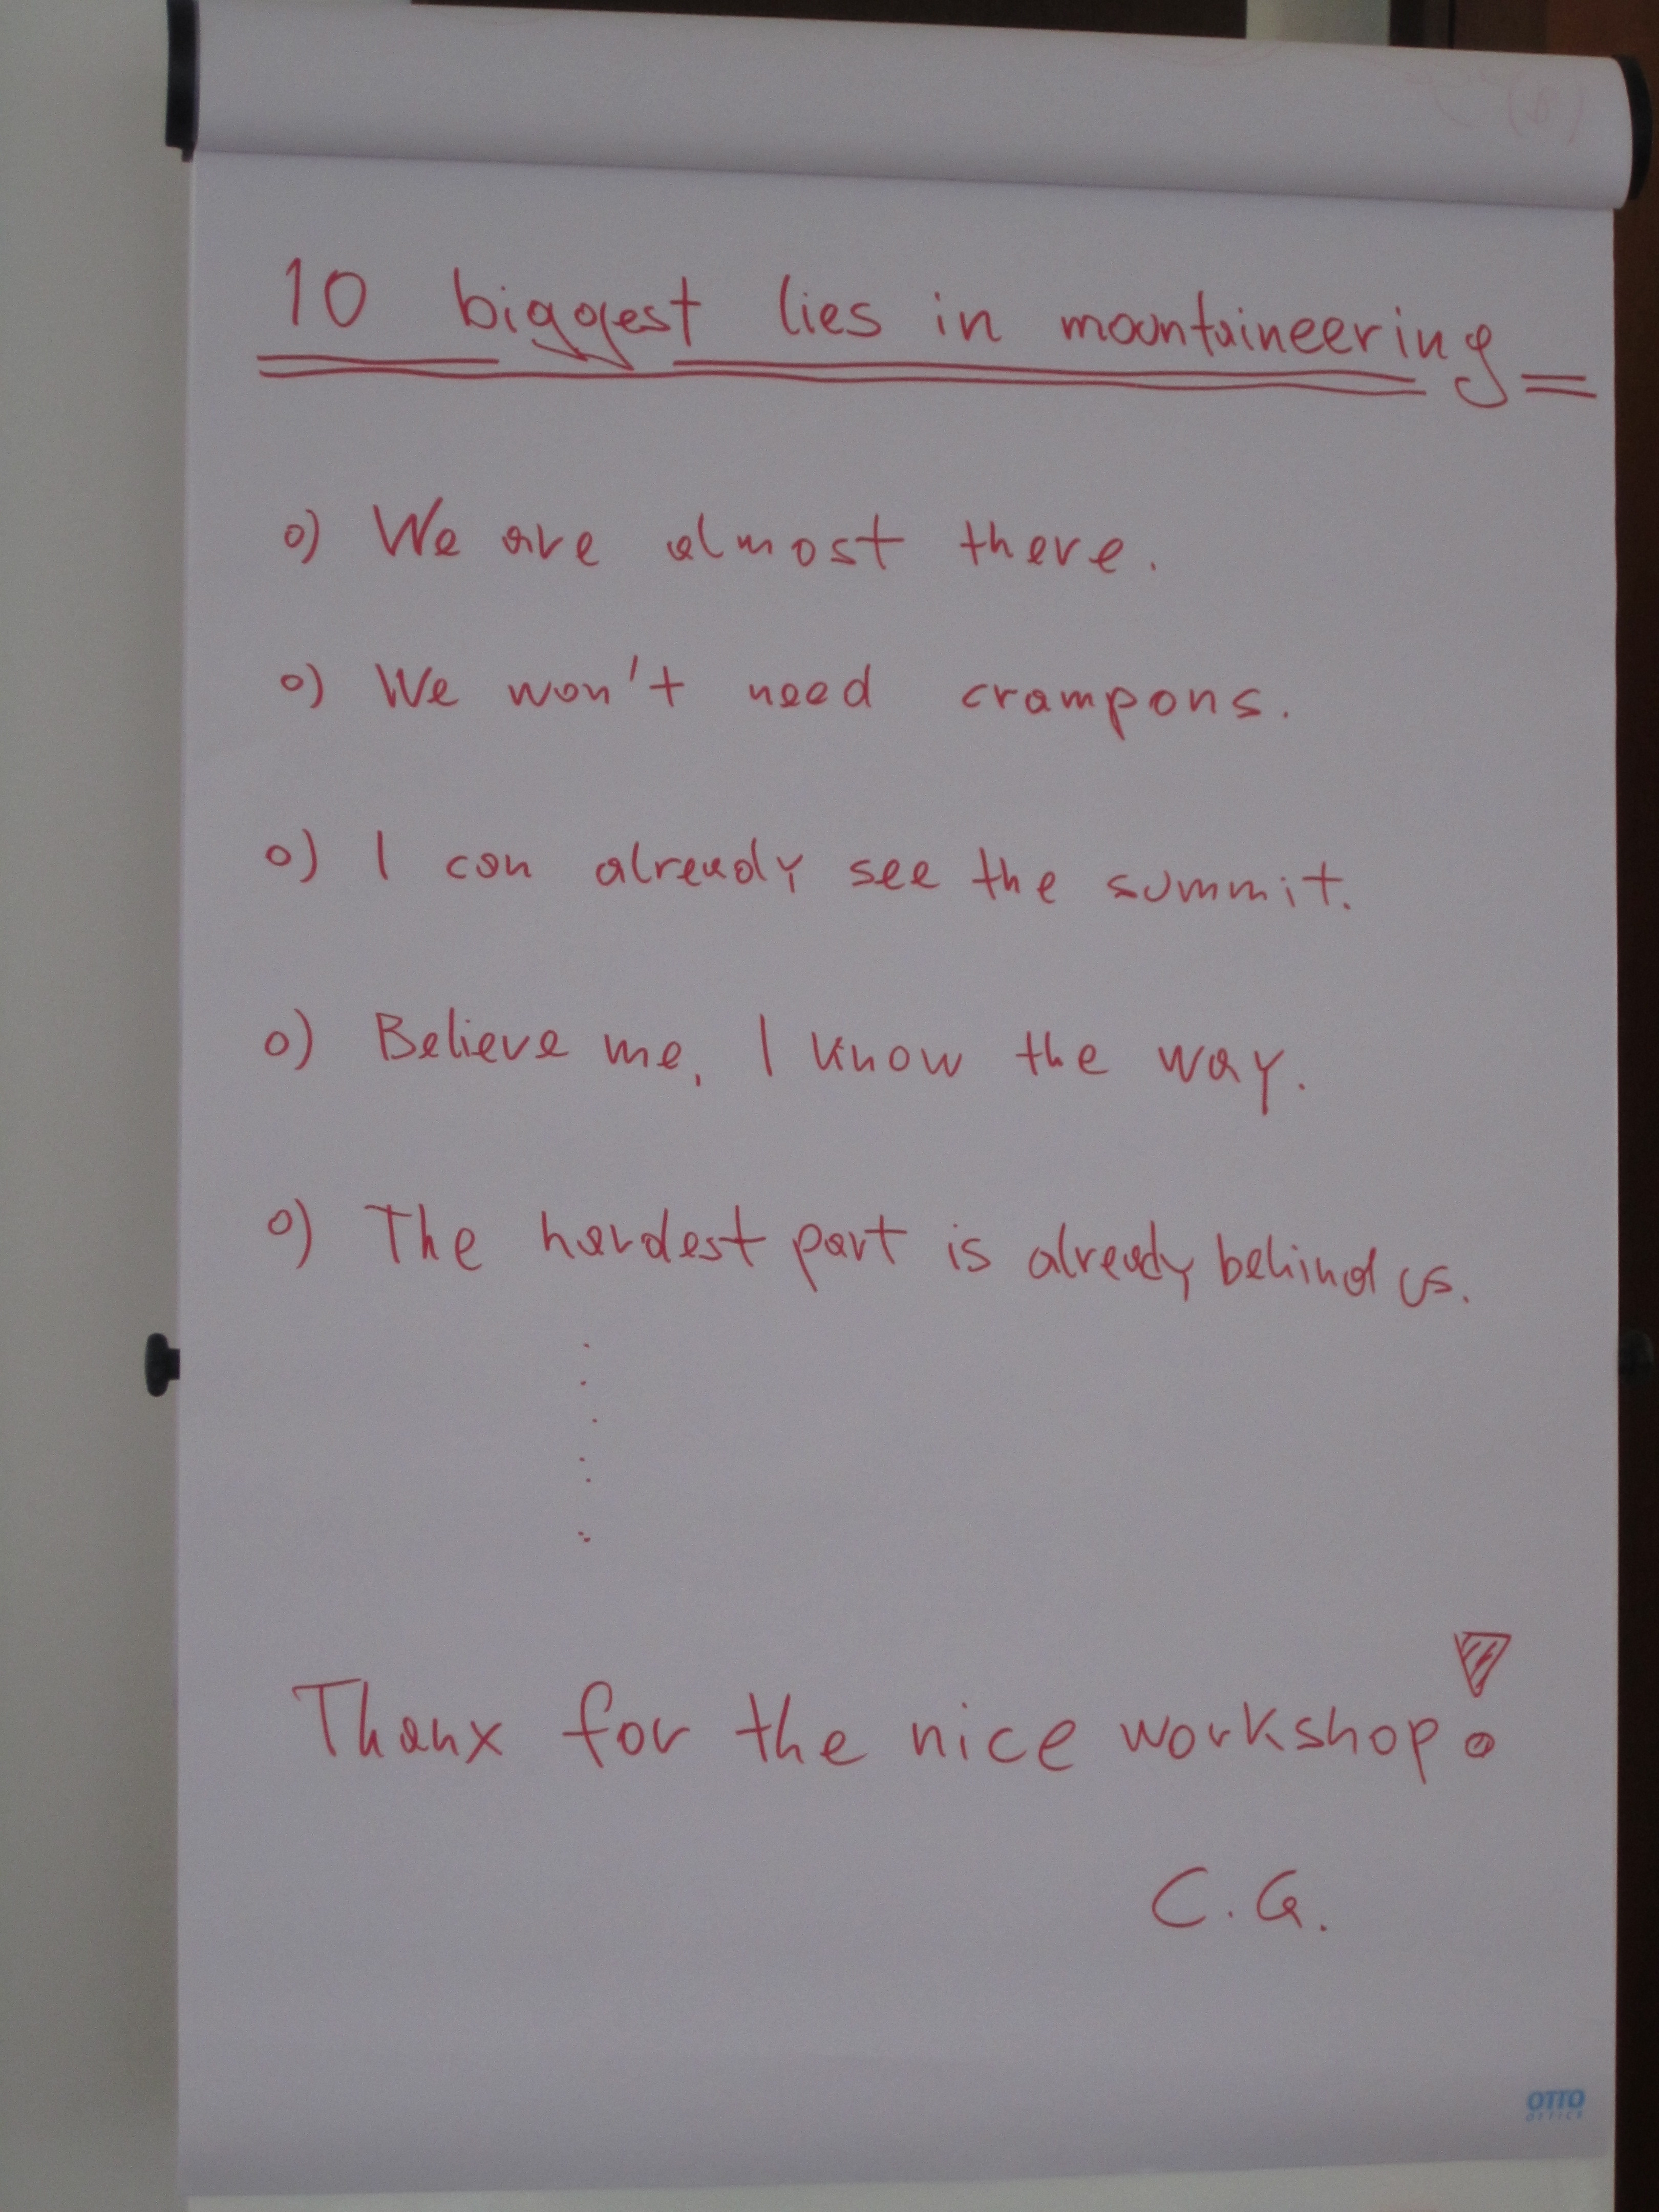 10 biggest lies in mountaineering
o) We are almost there.
o) We won't need crampons.
o) I can already see the summit.
o) Believe me, I know the way.
o) The hardest part is already behind us.
Thanx for the nice workshop!
C.G.
OTTO
OFFICE